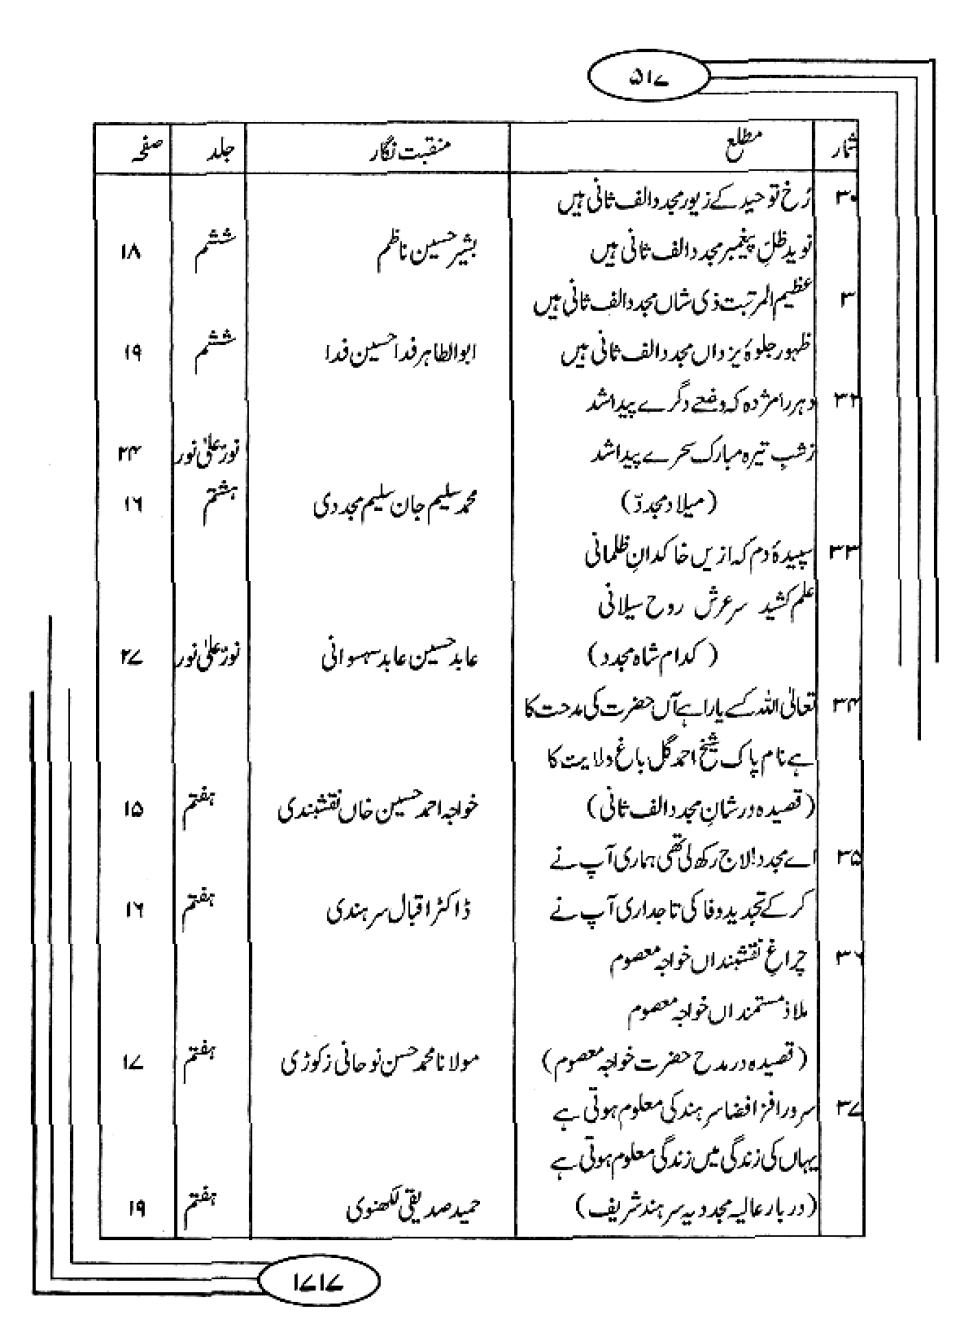 ۵۱۷
شمار مطلع منقبت نگار جلد صفحہ
۳۰ رُخ توحید کے زیور مجدد الف ثانی ہیں
نوید ظلِ پیغمبر مجدد الف ثانی ہیں بشیر حسین ناظم ششم ۱۸
۳ عظیم المرتبت ذی شاں مجدد الف ثانی ہیں
ظہور جلوۂ یزداں مجدد الف ثانی ہیں ابوالطاہر فدا حسین فدا ششم ۱۹
۳۲ دہر را مژدہ کہ وضعے دگرے پیدا شد
زشبِ تیرہ مبارک سحرے پیدا شد نورٌ علیٰ نور ۲۴
(میلاد مجددؒ) محمد سلیم جان سلیم مجددی ہشتم ۱۶
۳۳ سپیدۂ دم کہ ازیں خاکدانِ ظلمانی
علم کشید سرعرش روح سیلانی
(کدام شاہ مجدد) عابد حسین عابد سہسوانی نورٌ علیٰ نور ۲۷
۳۴ تعالیٰ اللہ کسے یارا ہے آں حضرت کی مدحت کا
ہے نام پاک شیخ احمد گل باغ ولایت کا
(قصیدہ در شانِ مجدد الف ثانی) خواجہ احمد حسین خاں نقشبندی ہفتم ۱۵
۳۵ اے مجدد! لاج رکھ لی تھی ہماری آپ نے
کر کے تجدید وفا کی تاجداری آپ نے ڈاکٹر اقبال سرہندی ہفتم ۱۶
۳۶ چراغِ نقشبنداں خواجہ معصوم
ملاذ مستمنداں خواجہ معصوم
(قصیدہ در مدح حضرت خواجہ معصوم) مولانا محمد حسن نوحانی زکوڑی ہفتم ۱۷
۳۷ سرور افزا فضا سرہند کی معلوم ہوتی ہے
یہاں کی زندگی میں زندگی معلوم ہوتی ہے
(دربار عالیہ مجددیہ سرہند شریف) حمید صدیقی لکھنوی ہفتم ۱۹
۱۷۱۷